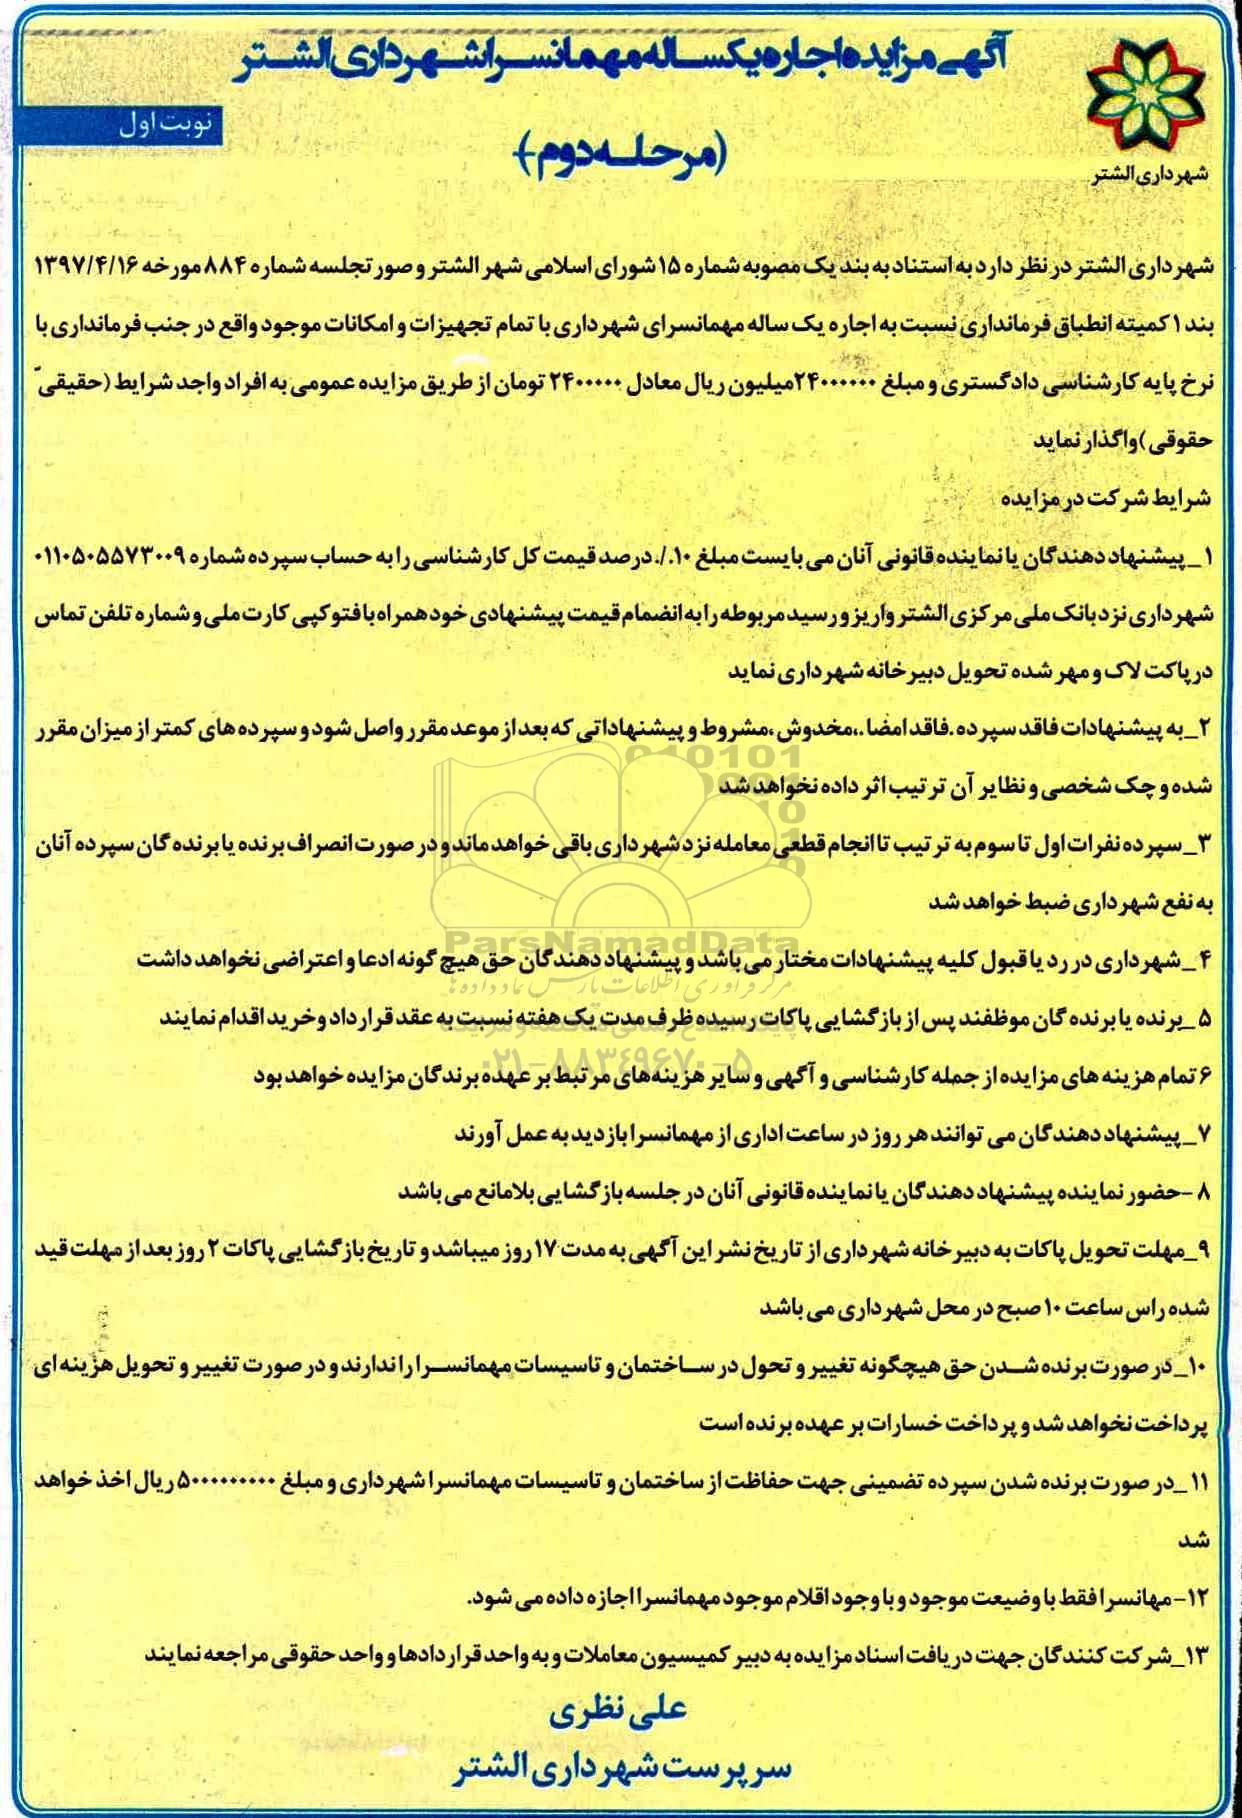 آگهی مزایده اجاره یکساله مهمانسرا شهرداری الشتر
نوبت اول
(مرحله دوم)
شهرداری الشتر
شهرداری الشتر در نظر دارد به استناد به بند یک مصوبه شماره ۱۵ شورای اسلامی شهر الشتر و صورتجلسه شماره ۸۸۴ مورخه ۱۳۹۷/۴/۱۶
بند ۱ کمیته انطباق فرمانداری نسبت به اجاره یک ساله مهمانسرای شهرداری با تمام تجهیزات و امکانات موجود واقع در جنب فرمانداری با
نرخ پایه کارشناسی دادگستری و مبلغ ۲۴۰۰۰۰۰۰ میلیون ریال معادل ۲۴۰۰۰۰۰ تومان از طریق مزایده عمومی به افراد واجد شرایط (حقیقی
حقوقی) واگذار نماید
شرایط شرکت در مزایده
۱_ پیشنهاد دهندگان یا نماینده قانونی آنان می بایست مبلغ ۱۰./. درصد قیمت کل کارشناسی را به حساب سپرده شماره ۰۱۱۰۵۰۵۵۷۳۰۰۹
شهرداری نزد بانک ملی مرکزی الشتر واریز و رسید مربوطه را به انضمام قیمت پیشنهادی خود همراه با فتوکپی کارت ملی و شماره تلفن تماس
در پاکت لاک و مهر شده تحویل دبیرخانه شهرداری نماید
۲_ به پیشنهادات فاقد سپرده .فاقد امضا .،مخدوش ،مشروط و پیشنهاداتی که بعد از موعد مقرر واصل شود و سپرده های کمتر از میزان مقرر
شده و چک شخصی و نظایر آن ترتیب اثر داده نخواهد شد
۳_سپرده نفرات اول تا سوم به ترتیب تا انجام قطعی معامله نزد شهرداری باقی خواهد ماند و در صورت انصراف برنده یا برنده گان سپرده آنان
به نفع شهرداری ضبط خواهد شد
۴_شهرداری در رد یا قبول کلیه پیشنهادات مختار می باشد و پیشنهاد دهندگان حق هیچ گونه ادعا و اعتراضی نخواهد داشت
ParsNamadData
مرکز فرآوری اطلاعات پارس نماد داده ها
۵_برنده یا برنده گان موظفند پس از بازگشایی پاکات رسیده ظرف مدت یک هفته نسبت به عقد قرارداد و خرید اقدام نمایند
۰۲۱-۸۸۳۴۹۶۷۰-۵
۶ تمام هزینه های مزایده از جمله کارشناسی و آگهی و سایر هزینه‌های مرتبط بر عهده برندگان مزایده خواهد بود
۷_ پیشنهاد دهندگان می توانند هر روز در ساعت اداری از مهمانسرا بازدید به عمل آورند
۸ -حضور نماینده پیشنهاد دهندگان یا نماینده قانونی آنان در جلسه بازگشایی بلامانع می باشد
۹_مهلت تحویل پاکات به دبیرخانه شهرداری از تاریخ نشر این آگهی به مدت ۱۷ روز میباشد و تاریخ بازگشایی پاکات ۲ روز بعد از مهلت قید
شده راس ساعت ۱۰ صبح در محل شهرداری می باشد
۱۰_در صورت برنده شدن حق هیچگونه تغییر و تحول در ساختمان و تاسیسات مهمانسرا را ندارند و در صورت تغییر و تحویل هزینه ای
پرداخت نخواهد شد و پرداخت خسارات بر عهده برنده است
۱۱_در صورت برنده شدن سپرده تضمینی جهت حفاظت از ساختمان و تاسیسات مهمانسرا شهرداری و مبلغ ۵۰۰۰۰۰۰۰۰۰ ریال اخذ خواهد
شد
۱۲-مهانسرا فقط با وضیعت موجود و با وجود اقلام موجود مهمانسرا اجازه داده می شود.
۱۳_شرکت کنندگان جهت دریافت اسناد مزایده به دبیر کمیسیون معاملات و به واحد قراردادها و واحد حقوقی مراجعه نمایند
علی نظری
سرپرست شهرداری الشتر